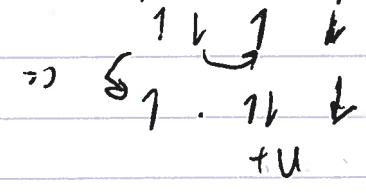 ↿ ⇂ ↿ ⇂
=> ↿ . ↿⇂ ⇂
+U